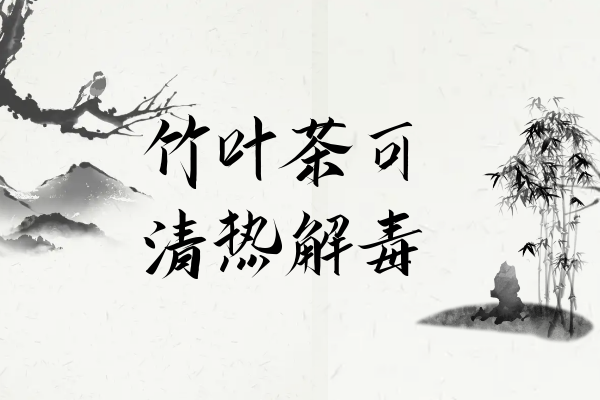 竹叶茶可
清热解毒